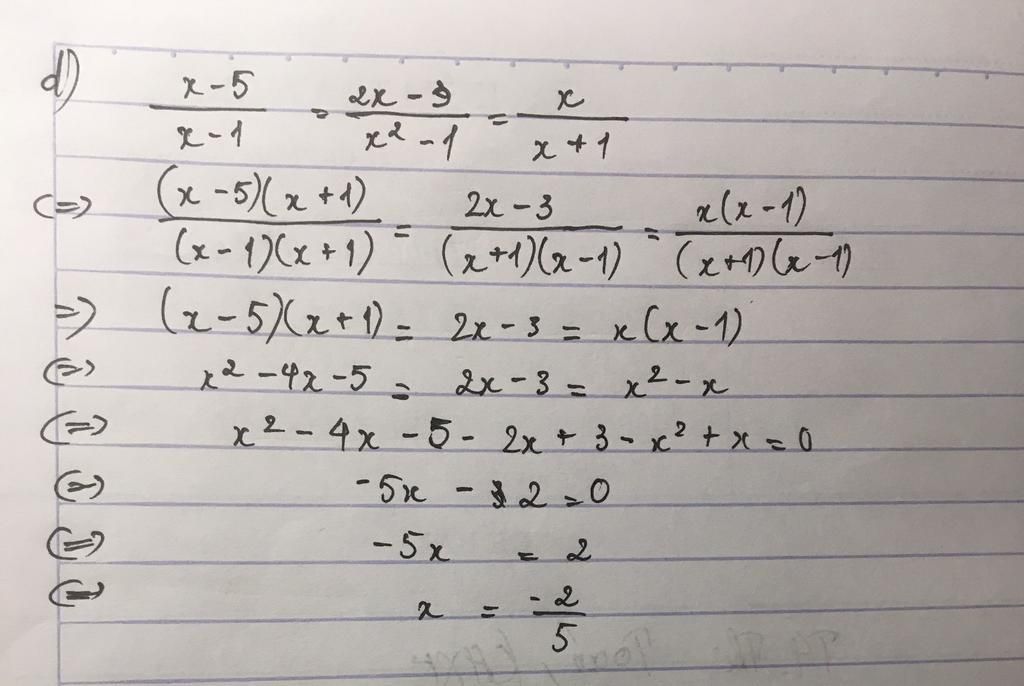 d) (x-5)/(x-1) = (2x-3)/(x²-1) = x/(x+1)
(=) ((x-5)(x+1))/((x-1)(x+1)) = (2x-3)/((x+1)(x-1)) = (x(x-1))/((x+1)(x-1))
=) (x-5)(x+1) = 2x-3 = x(x-1)
(=) x²-4x-5 = 2x-3 = x²-x
(=) x²-4x-5-2x+3-x²+x=0
(=) -5x-2=0
(=) -5x = 2
(=) x = -2/5